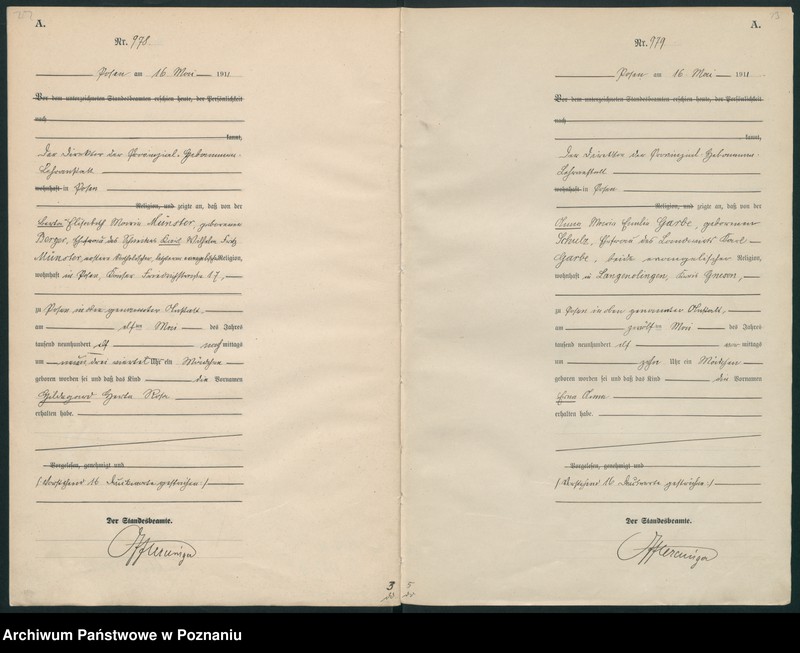 A.
Nr. 978.
Posen am 16 Mai 1911
Vor dem unterzeichneten Standesbeamten erschien heute, der Persönlichkeit
nach
kannt,
Der Direktor der Provinzial-Hebammen-
Lehranstalt
wohnhaft in Posen
Religion, und zeigte an, daß von der
Elisabeth Maria Münster, geborenen
Berger, Ehefrau des Karl Wilhelm
Münster, Religion,
wohnhaft in Posen, 17,
zu Posen in oben genannter Anstalt,
am elften Mai des Jahres
tausend neunhundert elf nachmittags
um neun drei viertel Uhr ein Mädchen
geboren worden sei und daß das Kind die Vornamen
Hildegard Herta Rosa
erhalten habe.
Vorgelesen, genehmigt und
(Vorstehend 16 Druckworte gestrichen)
Der Standesbeamte.
3
A.
Nr. 979
Posen am 16 Mai 1911
Vor dem unterzeichneten Standesbeamten erschien heute, der Persönlichkeit
nach
kannt,
Der Direktor der Provinzial-Hebammen-
Lehranstalt
wohnhaft in Posen
Religion, und zeigte an, daß von der
Anna Maria Emilie Garbe, geborenen
Schulz, Ehefrau des Landwirts Karl
Garbe, beide evangelischer Religion,
wohnhaft in Langenolingen, Kreis Gnesen,
zu Posen in oben genannter Anstalt,
am zwölften Mai des Jahres
tausend neunhundert elf vormittags
um zehn Uhr ein Mädchen
geboren worden sei und daß das Kind den Vornamen
Erna Anna
erhalten habe.
Vorgelesen, genehmigt und
(Vorstehend 16 Druckworte gestrichen)
Der Standesbeamte.
5
Archiwum Państwowe w Poznaniu